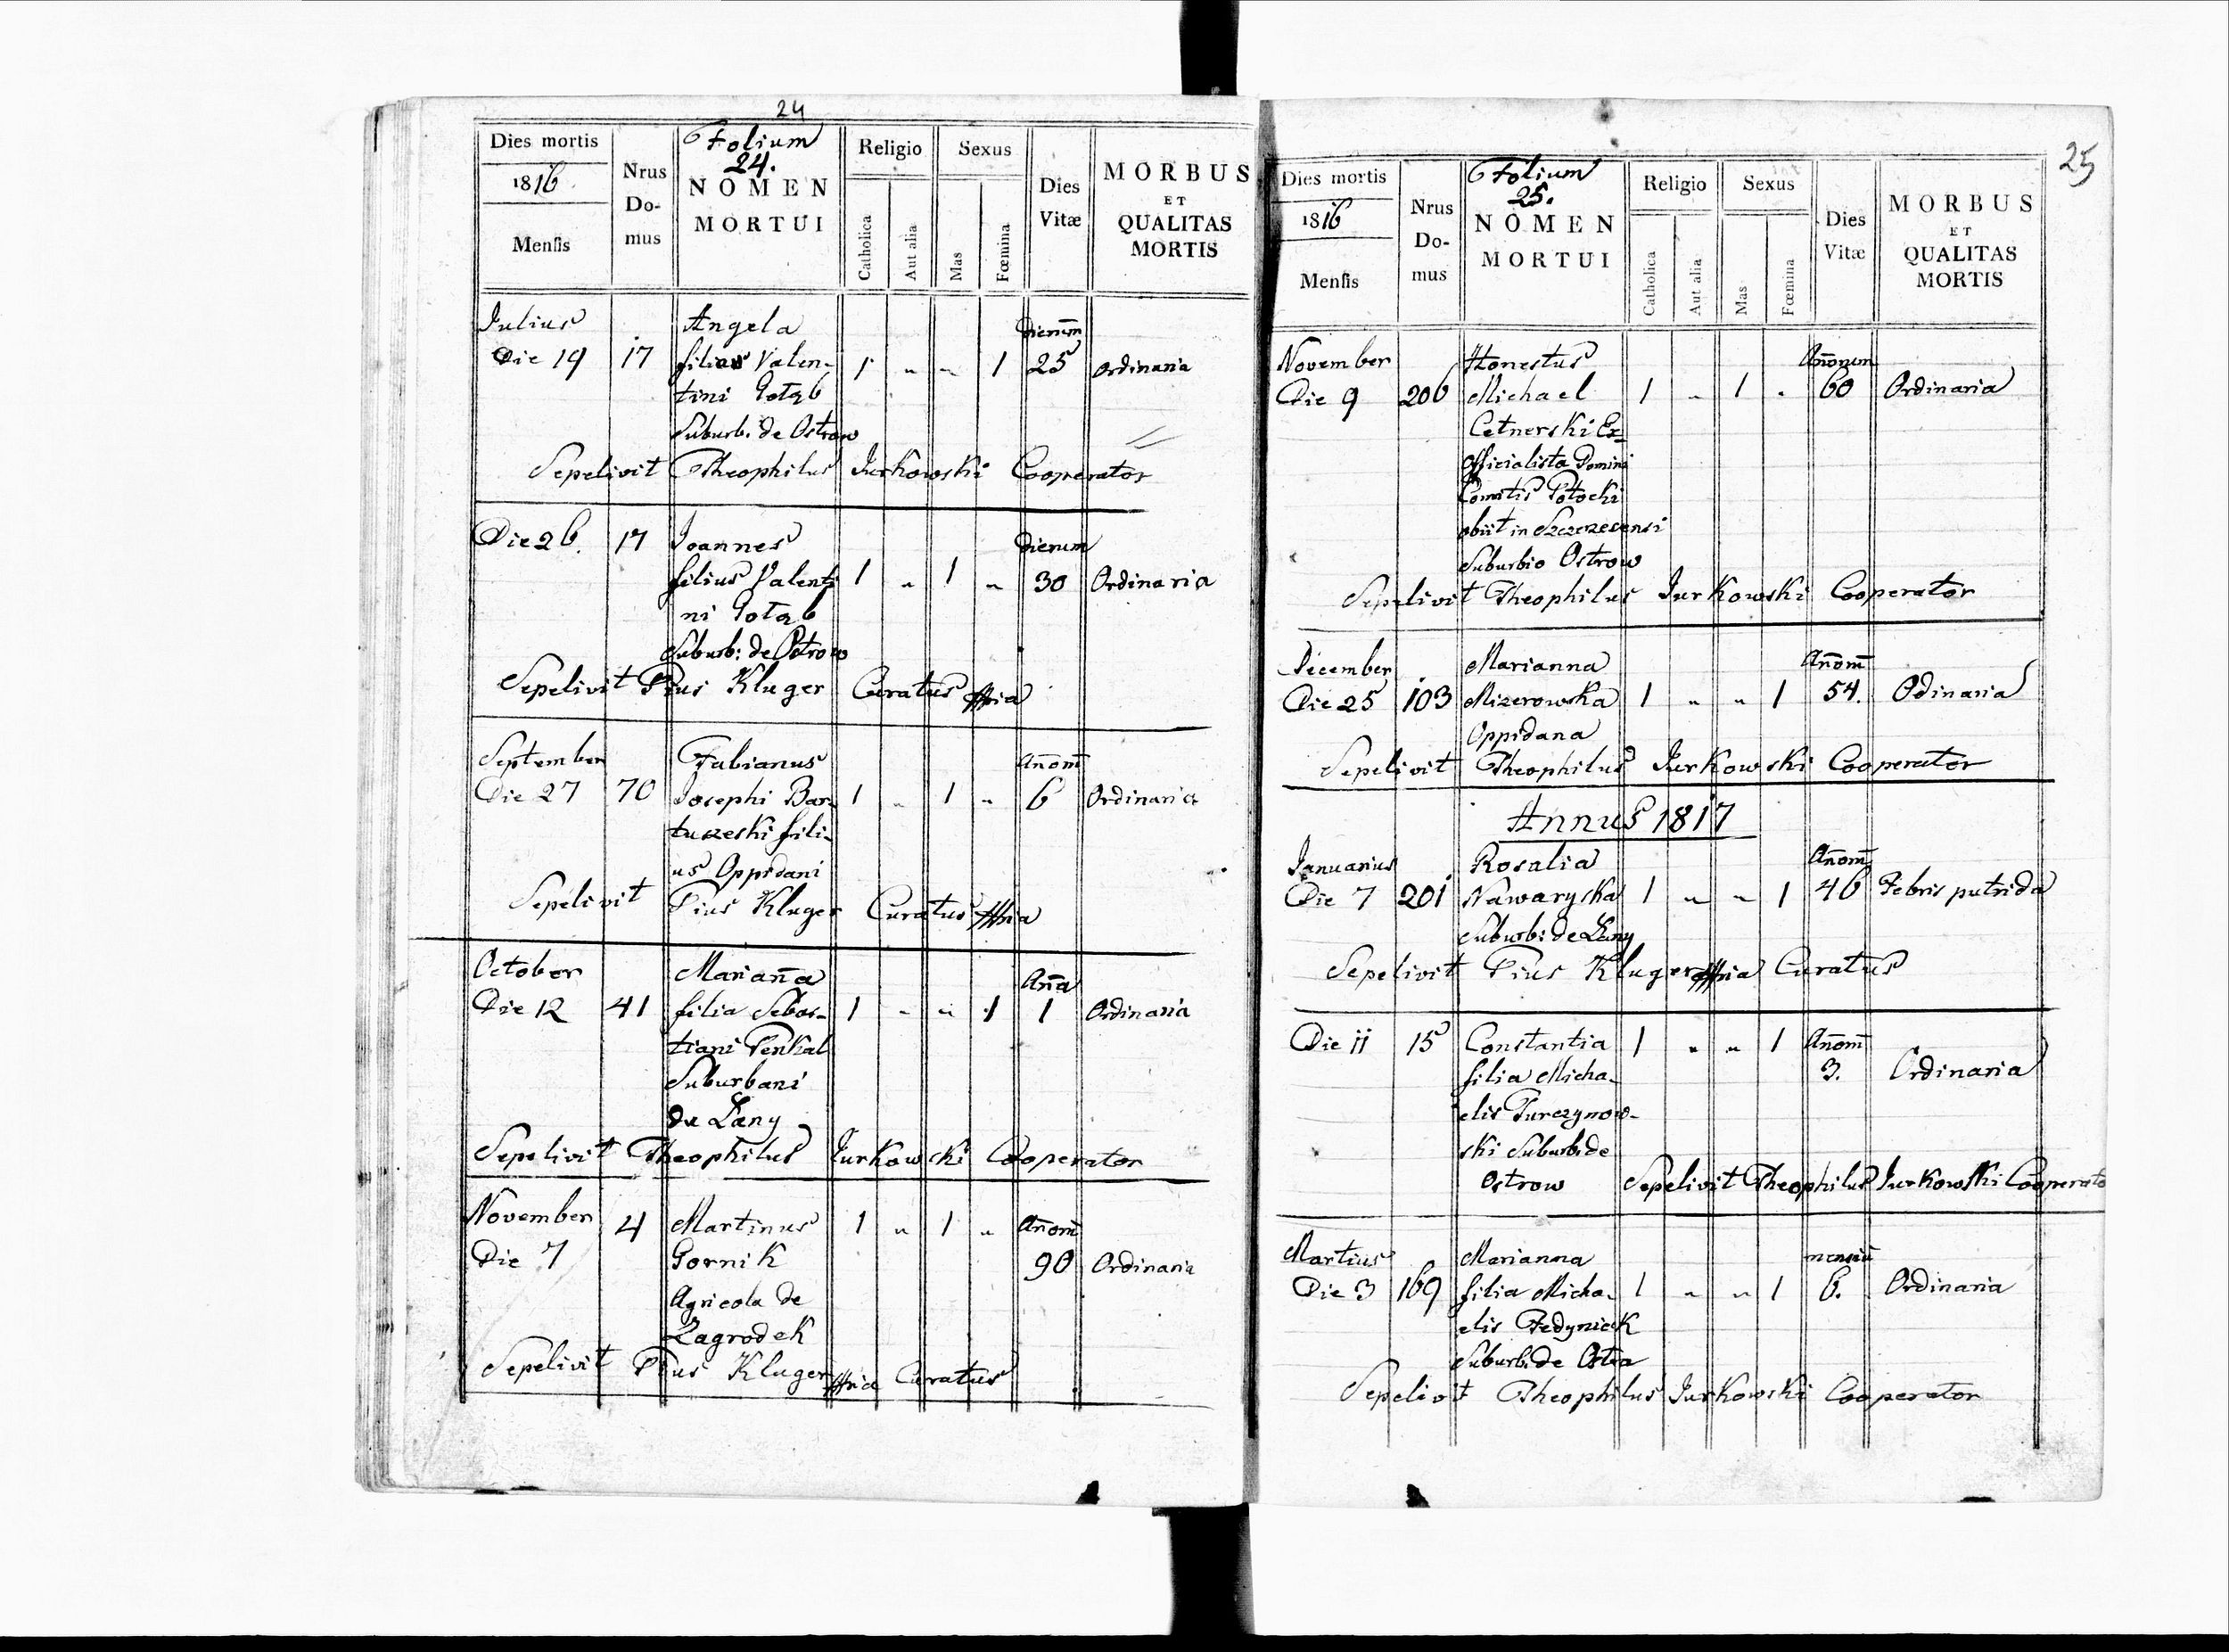 24
Dies mortis
1816
Mensis
Nrus Do-mus
Folium
24.
NOMEN
MORTUI
Religio
Catholica
Aut alia
Sexus
Mas
Fœmina
Dies
Vitæ
MORBUS
ET
QUALITAS
MORTIS
Julius Angela Dierum
Die 19 17 Valen- 1 " " 1 25 Ordinaria
tini Gołąb
Suburb. de Ostrow
Sepelivit Theophilus Jurkowski Cooperator
Die 26. 17 Joannes Dierum
filius Valenti 1 " 1 " 30 Ordinaria
ni Gołąb
Suburb: de Ostrow
Sepelivit Pius Kluger Curatus
September Fabianus Añom̃
Die 27 70 Josephi Bar- 1 " 1 " 6 Ordinaria
tuszeski fili-
us Oppidani
Sepelivit Pius Kluger Curatus
October Mariañа Aña
Die 12 41 filia Sebas- 1 " " 1 1 Ordinaria
tiani Penkal
Suburbani
de Łany
Sepelivit Theophilus Jurkowski Cooperator
November 4 Martinus 1 " 1 " Añom̃
Die 7 Gornik 90 Ordinaria
Agricola de
Zagrodek
Sepelivit Pius Kluger Curatus
25
Dies mortis
1816
Mensis
Nrus Do-mus
Folium
25.
NOMEN
MORTUI
Religio
Catholica
Aut alia
Sexus
Mas
Fœmina
Dies
Vitæ
MORBUS
ET
QUALITAS
MORTIS
November Honestus Añorum
Die 9 206 Michael 1 " 1 " 60 Ordinaria
Cetnerski Ex
Officialista Domini
Comitis Potocki
obiit in Szczezecensi
Suburbio Ostrow
Sepelivit Theophilus Jurkowski Cooperator
December Marianna Añom̃
Die 25 103 Mizerowska 1 " " 1 54. Odinaria
Oppidana
Sepelivit Theophilus Jurkowski Cooperator
Annus 1817
Januarius Rosalia Añom̃
Die 7 201 Nawaryska 1 " " 1 46 Febris putrida
Suburb: de Łany
Sepelivit Pius Kluger Curatus
Die 11 15 Constantia 1 " " 1 Añom̃
filia Micha- 3. Ordinaria
elis Turczynow-
ski Suburb. de
Ostrow Sepelivit Theophilus Jurkowski Cooperato
Martius Marianna mensiũ
Die 3 169 filia Micha- 1 " " 1 6. Ordinaria
elis Fedynick
Suburb. de Ostro
Sepelivit Theophilus Jurkowski Cooperator